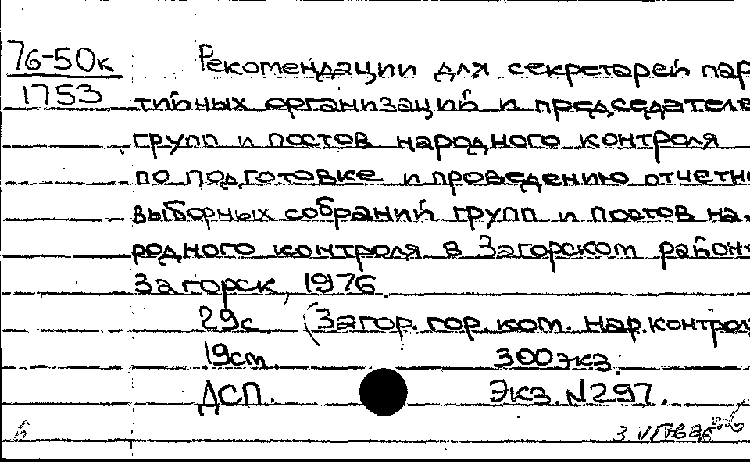 76-50к
1753
Рекомендации для секретарей пар
тийных организаций и председателе
групп и постов народного контроля
по подготовке и проведению отчетн
выборных собраний групп и постов на-
родного контроля в Загорском район
Загорск, 1976.
29с (Загор. гор. ком. нар. контрол
19см. 300 экз.
ДСП. Экз. №297.